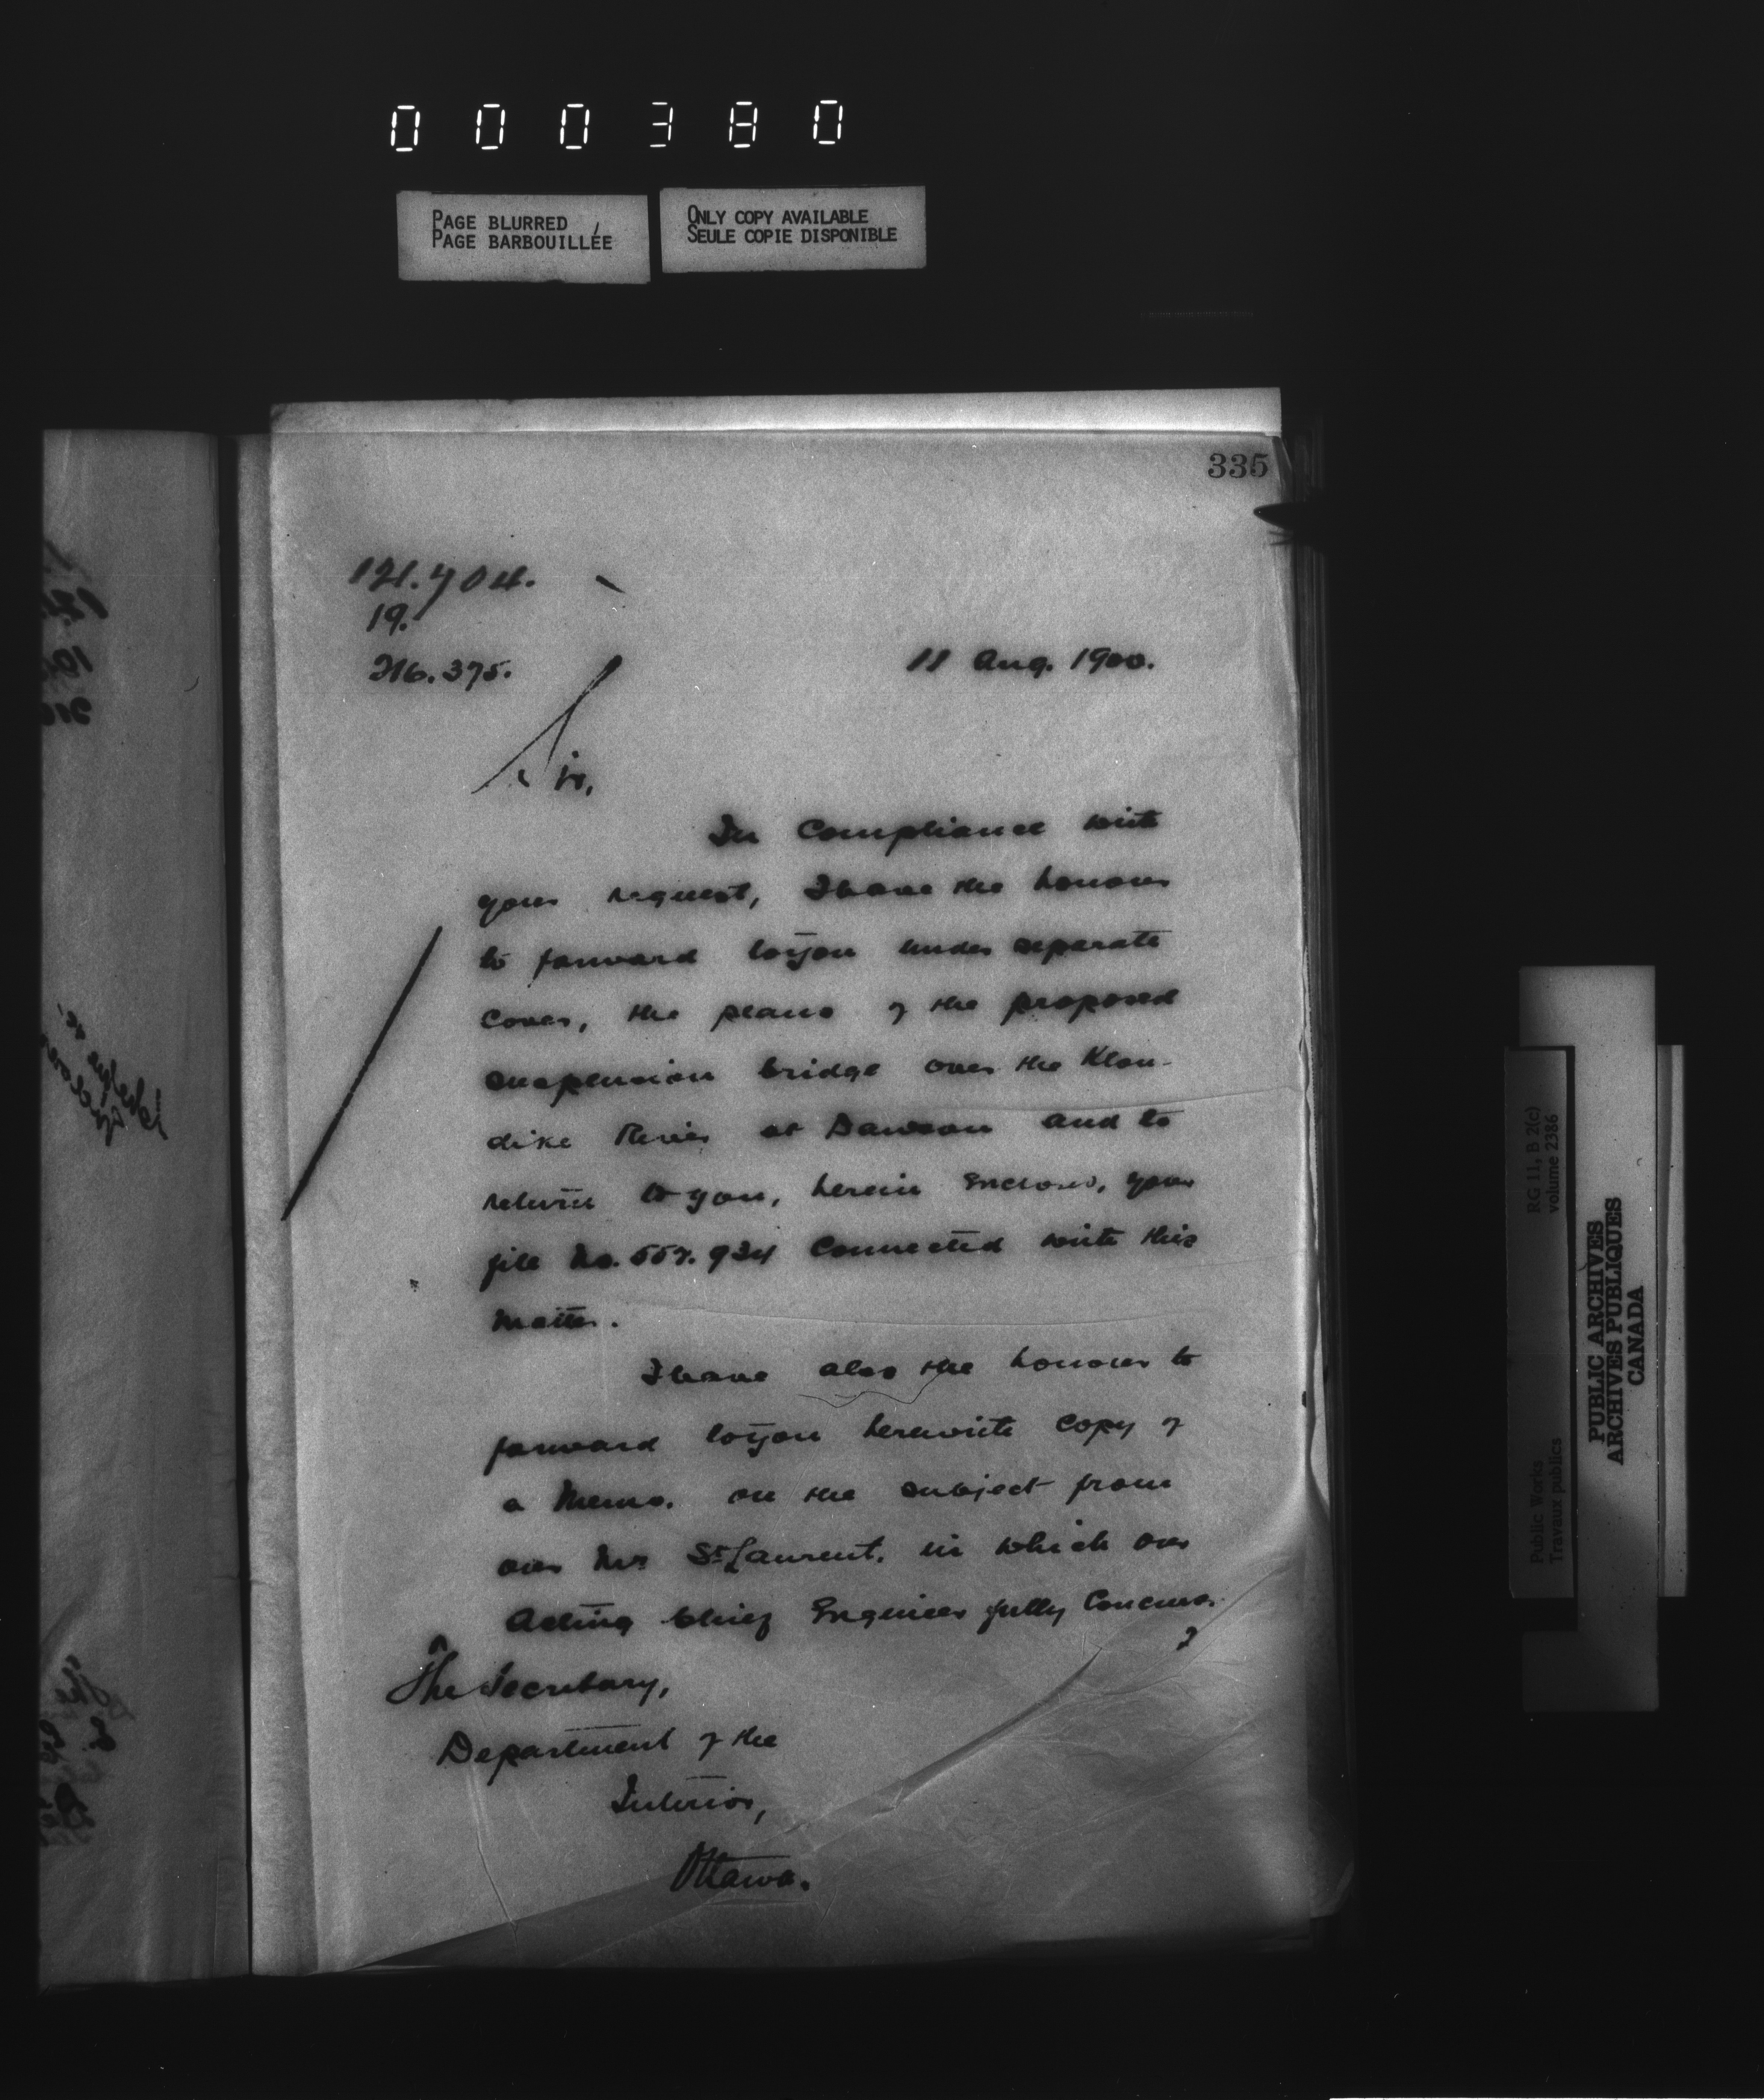 000380
PAGE BLURRED
PAGE BARBOUILLÉE
ONLY COPY AVAILABLE
SEULE COPIE DISPONIBLE
335
121.704.
19.
216.375.
11 Aug. 1900.
Sir,
In Compliance with
your request, I have the honour
to forward to you under separate
Cover, the plans of the proposed
suspension bridge over the Klon-
dike River at Dawson and to
return to you, herein enclosed, your
file No. 557.934 Connected with this
matter.
I have also the honour to
forward to you herewith Copy of
a Memo. on the subject from
our Mr St. Laurent, in which our
Acting Chief Engineer fully Concurs.
The Secretary,
Department of the
Interior,
Ottawa.
RG 11, B 2(c)
volume 2386
Public Works
Travaux publics
PUBLIC ARCHIVES
ARCHIVES PUBLIQUES
CANADA